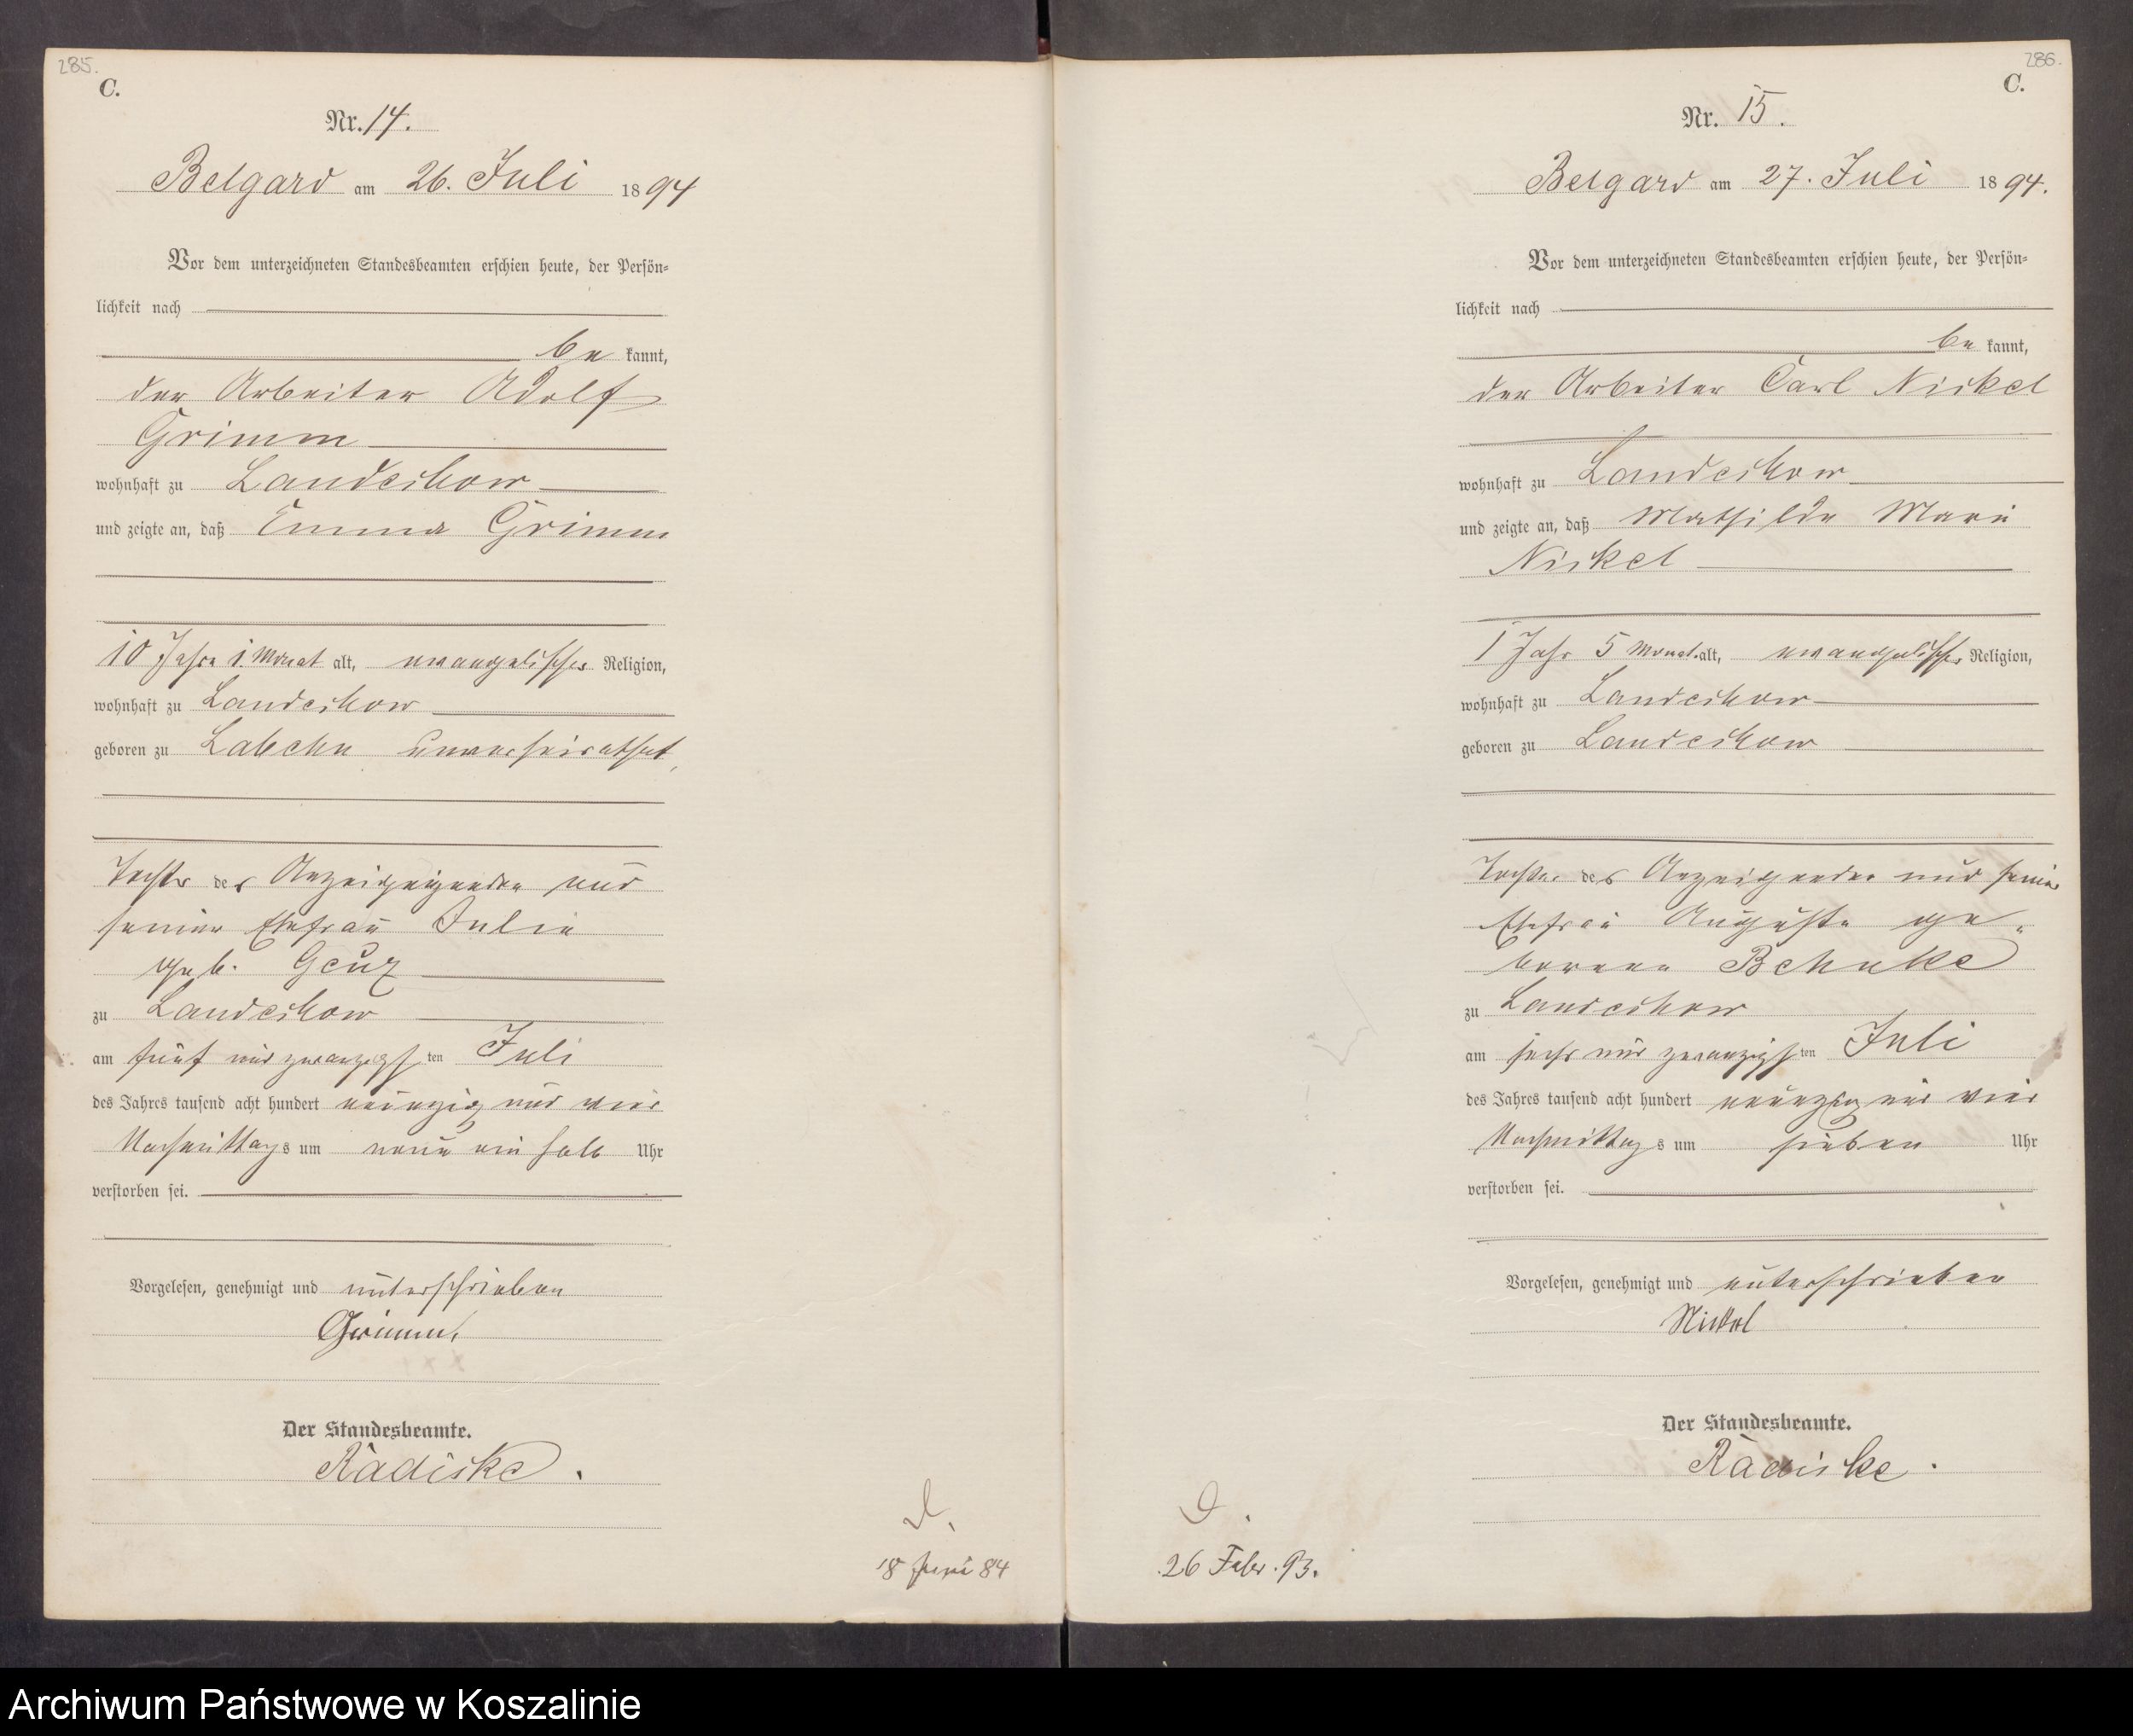 285.
C.
Nr. 14.
Belgard am 26. Juli 1894
Vor dem unterzeichneten Standesbeamten erschien heute, der Persön-
lichkeit nach
be kannt,
der Arbeiter Adolf
Grimm
wohnhaft zu Landechow
und zeigte an, daß Emma Grimm
10 Jahre 1 Monat alt, evangelischer Religion,
wohnhaft zu Landechow
geboren zu Labehn unverheirathet,
Tochter des Anzeigenden und
seiner Ehefrau Julie
geb.
zu Landechow
am fünf und zwanzigsten Juli
des Jahres tausend acht hundert neunzig und vier
Nachmittags um neun ein halb Uhr
verstorben sei.
Vorgelesen, genehmigt und unterschrieben
Grimm.
Der Standesbeamte.
Radiske.
18 Juni 84
286.
C.
Nr. 15.
Belgard am 27. Juli 1894.
Vor dem unterzeichneten Standesbeamten erschien heute, der Persön-
lichkeit nach
be kannt,
der Arbeiter Carl Nickel
wohnhaft zu Landechow
und zeigte an, daß Mathilde Marie
Nickel
1 Jahr 5 Monat alt, evangelischer Religion,
wohnhaft zu Landechow
geboren zu Landechow
Tochter des Anzeigenden und seiner
Ehefrau Auguste ge-
borene Behnke
zu Landechow
am sechs und zwanzigsten Juli
des Jahres tausend acht hundert neunzig und vier
Nachmittags um sieben Uhr
verstorben sei.
Vorgelesen, genehmigt und unterschrieben
Nickel
Der Standesbeamte.
Radiske.
26 Febr. 93.
Archiwum Państwowe w Koszalinie